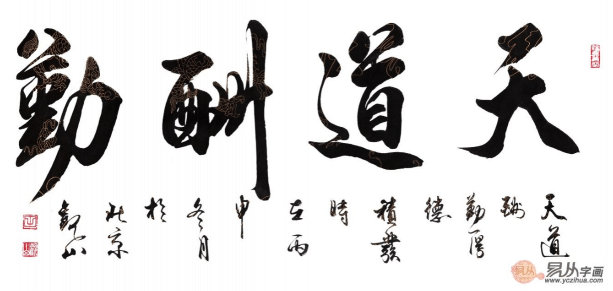 天道酬勤
天道
酬
勤厚
德
積發
時
在丙
申
冬月
於
北京
易从字画
www.yczihua.com